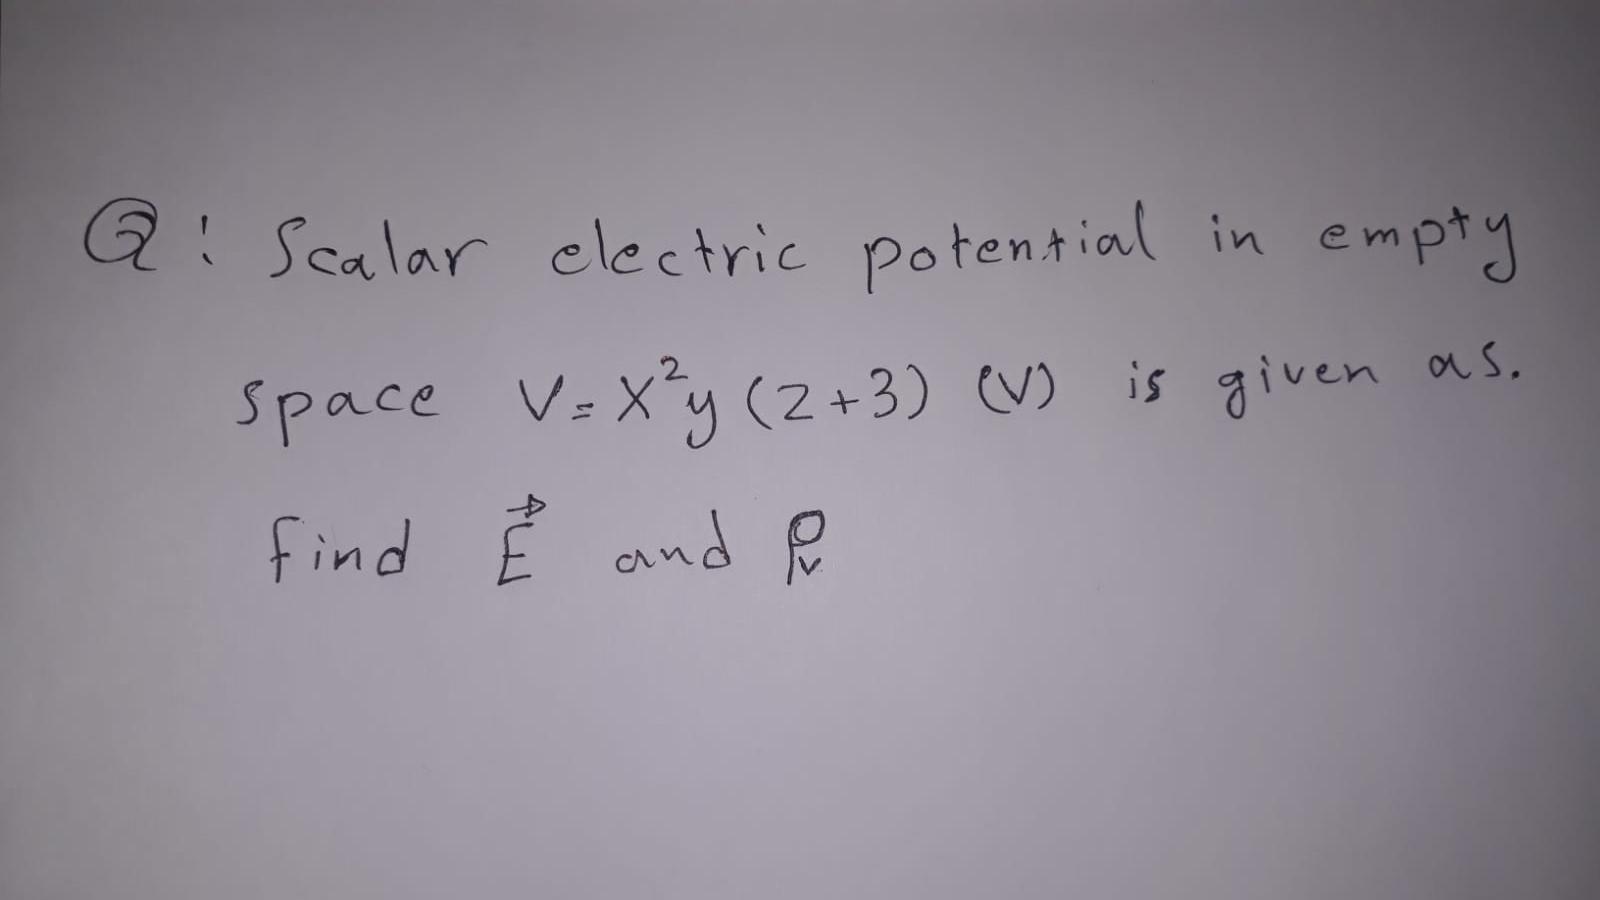 Q: Scalar electric potential in empty
space V = x²y (z+3) (V) is given as.
find E⃗ and ρᵥ